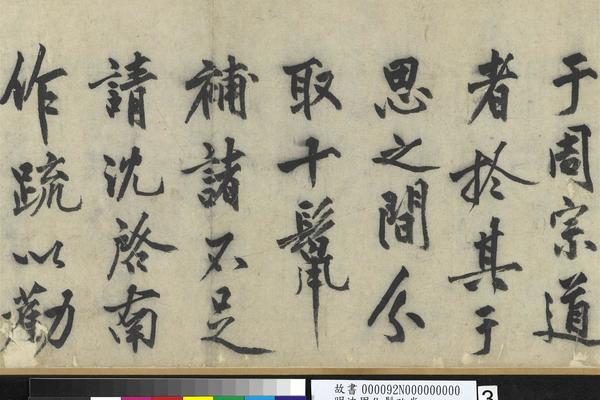 于周宗道
者於其于
思之間分
取十鬣
補諸不足
請沈啓南
作疏以勸
故書 000092N000000000
3